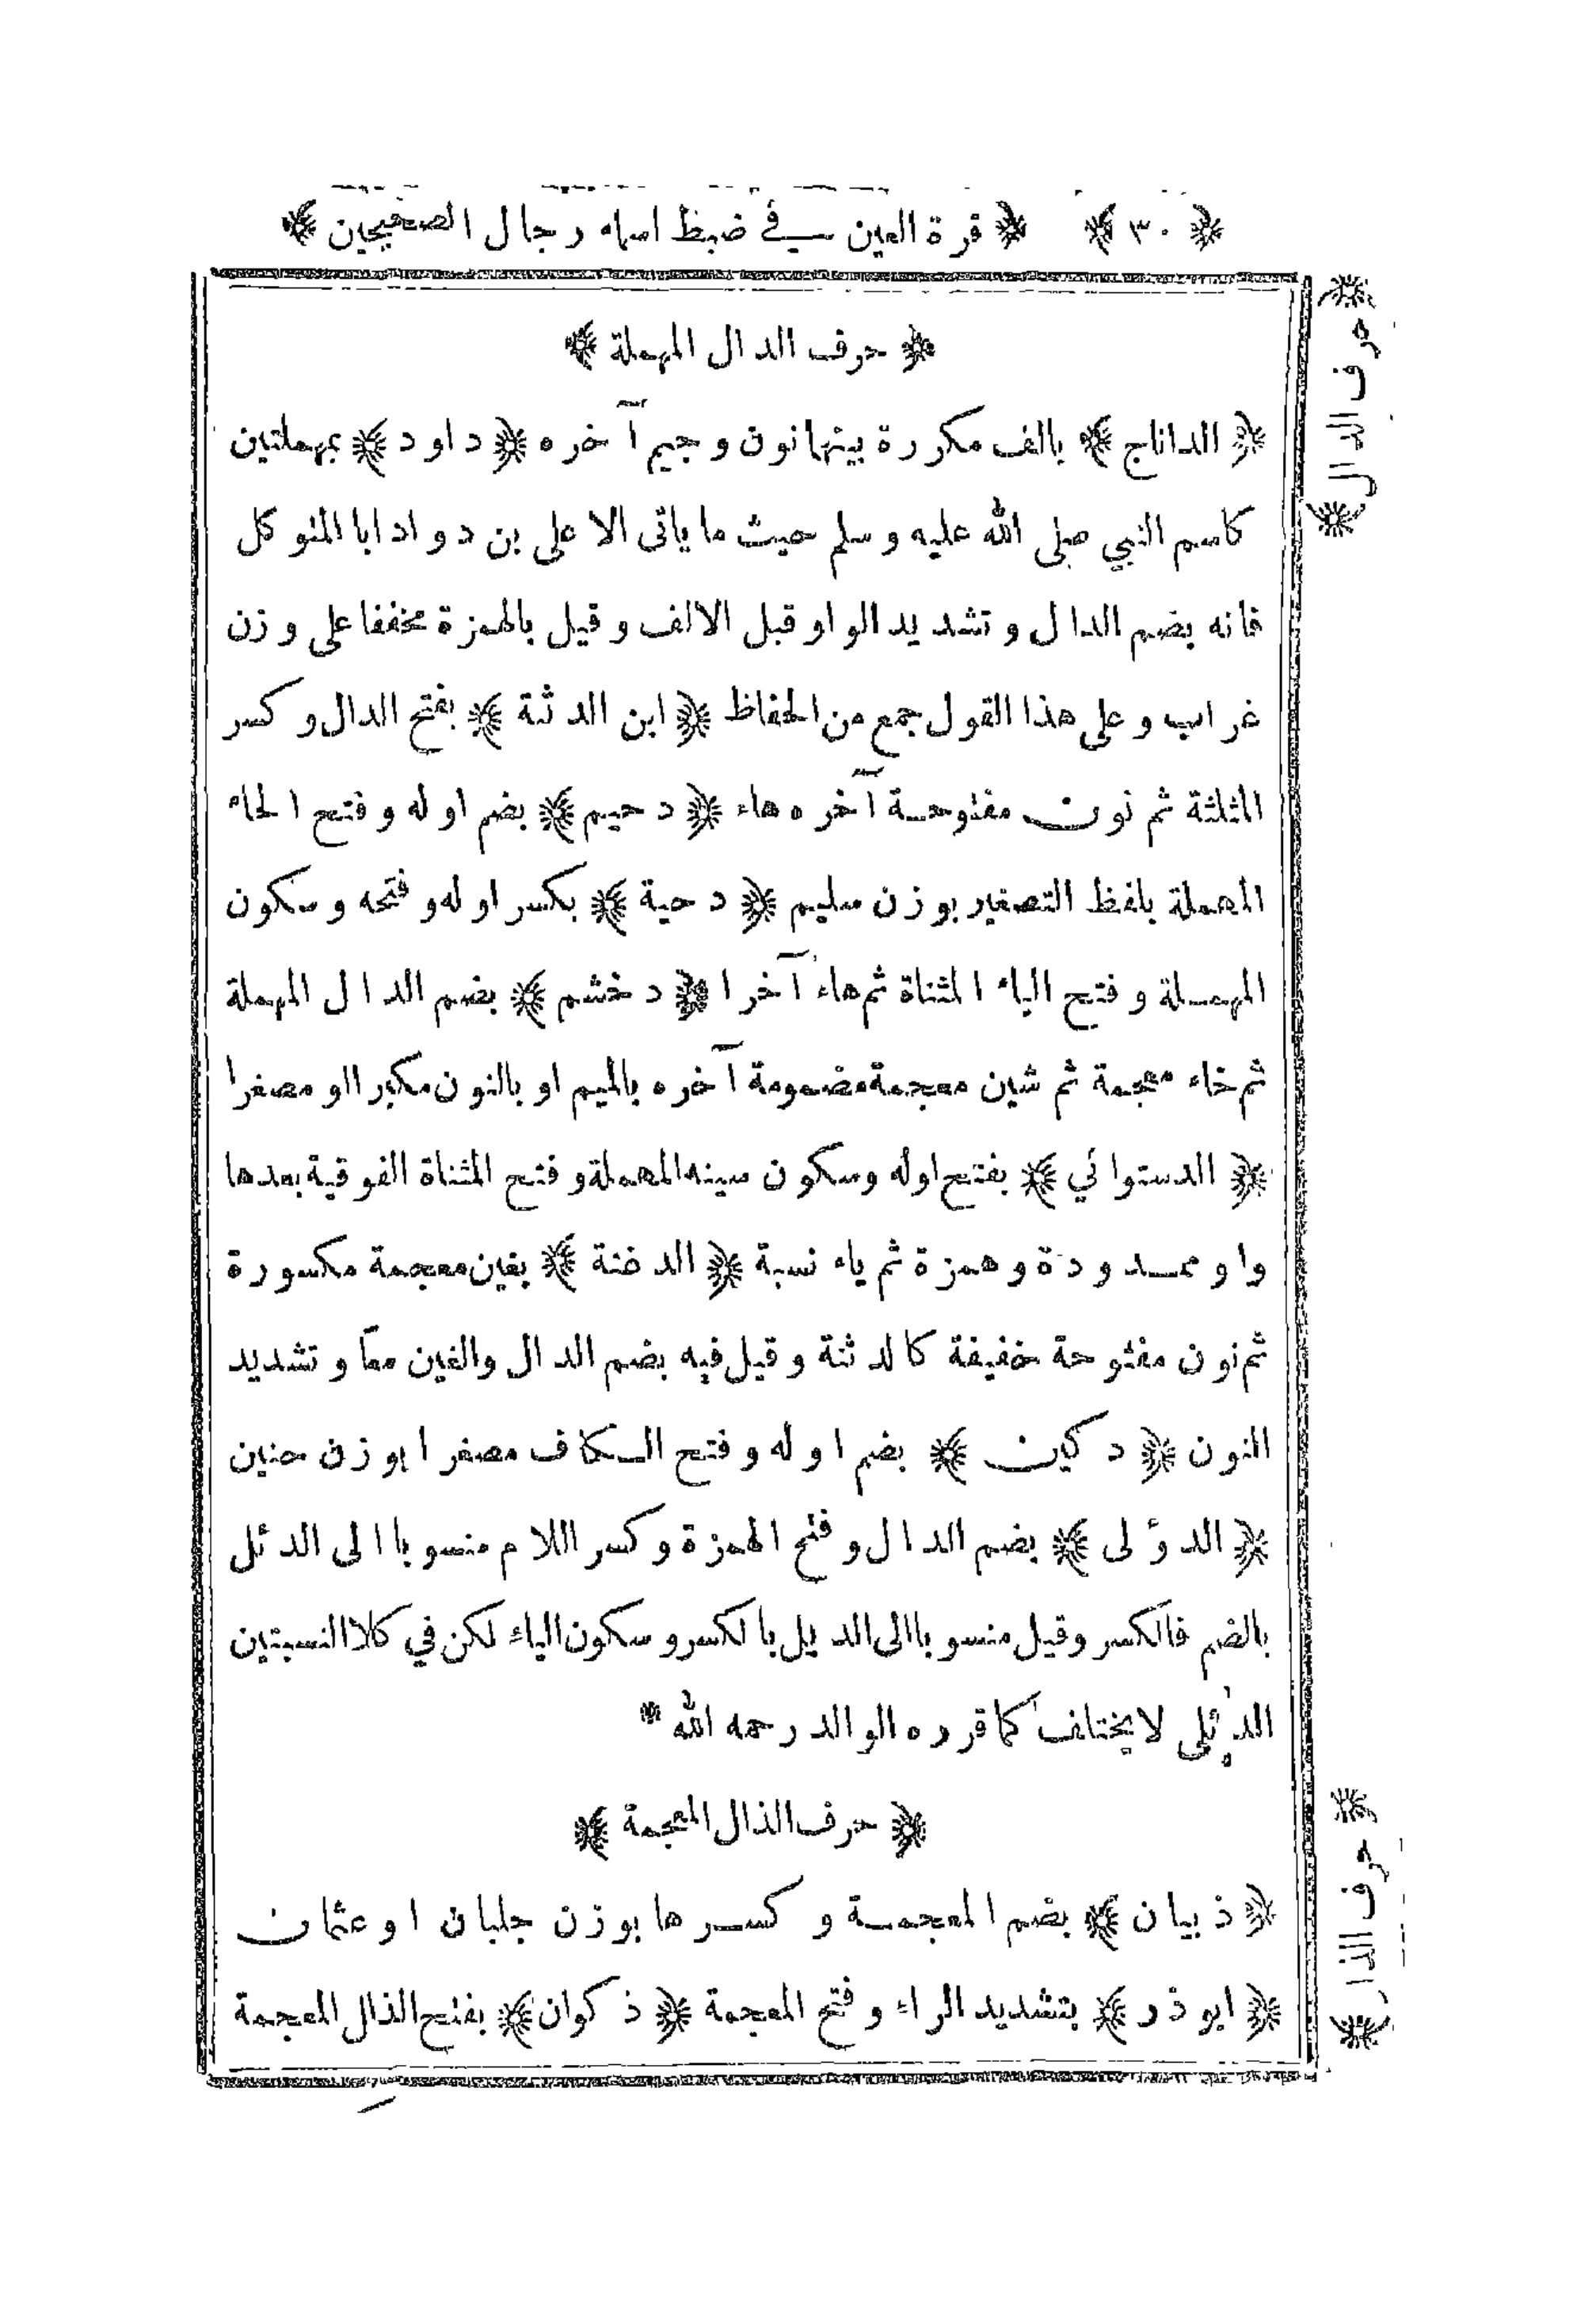 ﴿ ٣٠ ﴾ ﴿ قرة العين في ضبط اسماء رجال الصحيحين ﴾
﴿ حرف الدال المهملة ﴾
﴿ حرف الدال ﴾
﴿ الداناج ﴾ بالف مكررة بينهما نون وجيم آخره ﴿ داود ﴾ بمهملتين
كاسم النبي صلى الله عليه وسلم حيث ما ياتى الا على بن دواد ابا المتوكل
فانه بضم الدال وتشديد الواو قبل الالف وقيل بالهمزة مخففا على وزن
غراب وعلى هذا القول جمع من الحفاظ ﴿ ابن الدثنة ﴾ بفتح الدال وكسر
المثلثة ثم نون مفتوحة آخره هاء ﴿ دحيم ﴾ بضم اوله وفتح الحاء
المهملة بلفظ التصغير بوزن سليم ﴿ دحية ﴾ بكسر اوله وفتحه وسكون
المهملة وفتح الياء المثناة ثم هاء آخرا ﴿ دخشم ﴾ بضم الدال المهملة
ثم خاء معجمة ثم شين معجمة مضمومة آخره بالميم او بالنون مكبرا او مصغرا
﴿ الدستوائي ﴾ بفتح اوله وسكون سينه المهملة وفتح المثناة الفوقية بعدها
واو ممدودة وهمزة ثم ياء نسبة ﴿ الدغنة ﴾ بغين معجمة مكسورة
ثم نون مفتوحة خفيفة كالدثنة وقيل فيه بضم الدال والغين معًا وتشديد
النون ﴿ دكين ﴾ بضم اوله وفتح الكاف مصغرا بوزن حنين
﴿ الدؤلى ﴾ بضم الدال وفتح الهمزة وكسر اللام منسوبا الى الدئل
بالضم فالكسر وقيل منسوبا الى الديل بالكسر وسكون الياء لكن في كلا النسبتين
الدئلى لا يختلف كما قرره الوالد رحمه الله *
﴿ حرف الذال المعجمة ﴾
﴿ حرف الذال ﴾
﴿ ذبيان ﴾ بضم المعجمة وكسرها بوزن جلبان او عثمان
﴿ ابوذر ﴾ بتشديد الراء وفتح المعجمة ﴿ ذكوان ﴾ بفتح الذال المعجمة